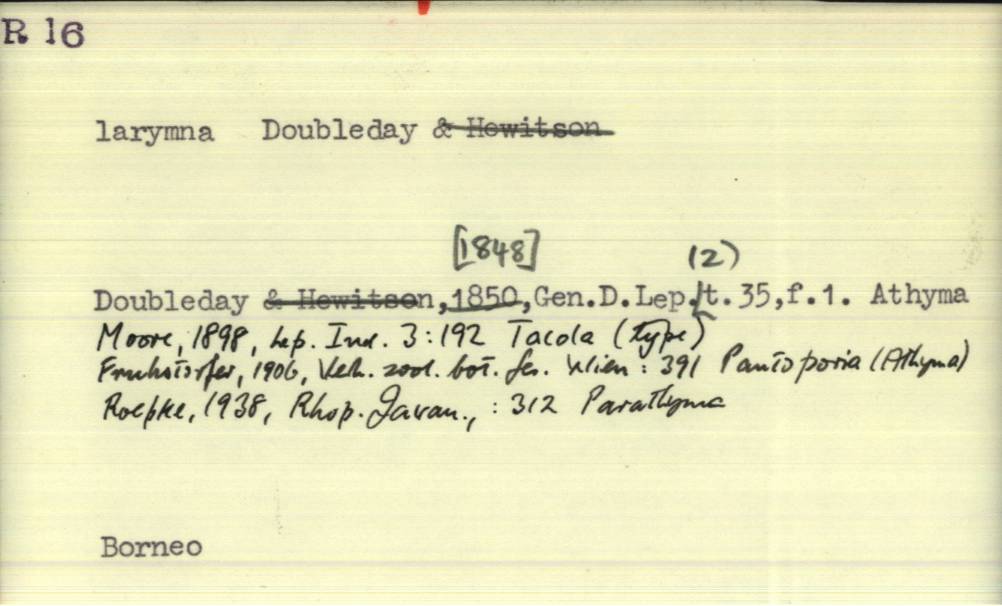 R 16
larymna Doubleday & Hewitson
[1848] (2)
Doubleday & Hewitson, 1850, Gen.D.Lep. t. 35, f.1. Athyma
Moore, 1898, Lep. Ind. 3:192 Tacola (type)
Fruhstorfer, 1906, Verh. zool. bot. Ges. Wien : 391 Pantoporia (Athyma)
Roepke, 1938, Rhop. Javan., : 312 Parathyma
Borneo